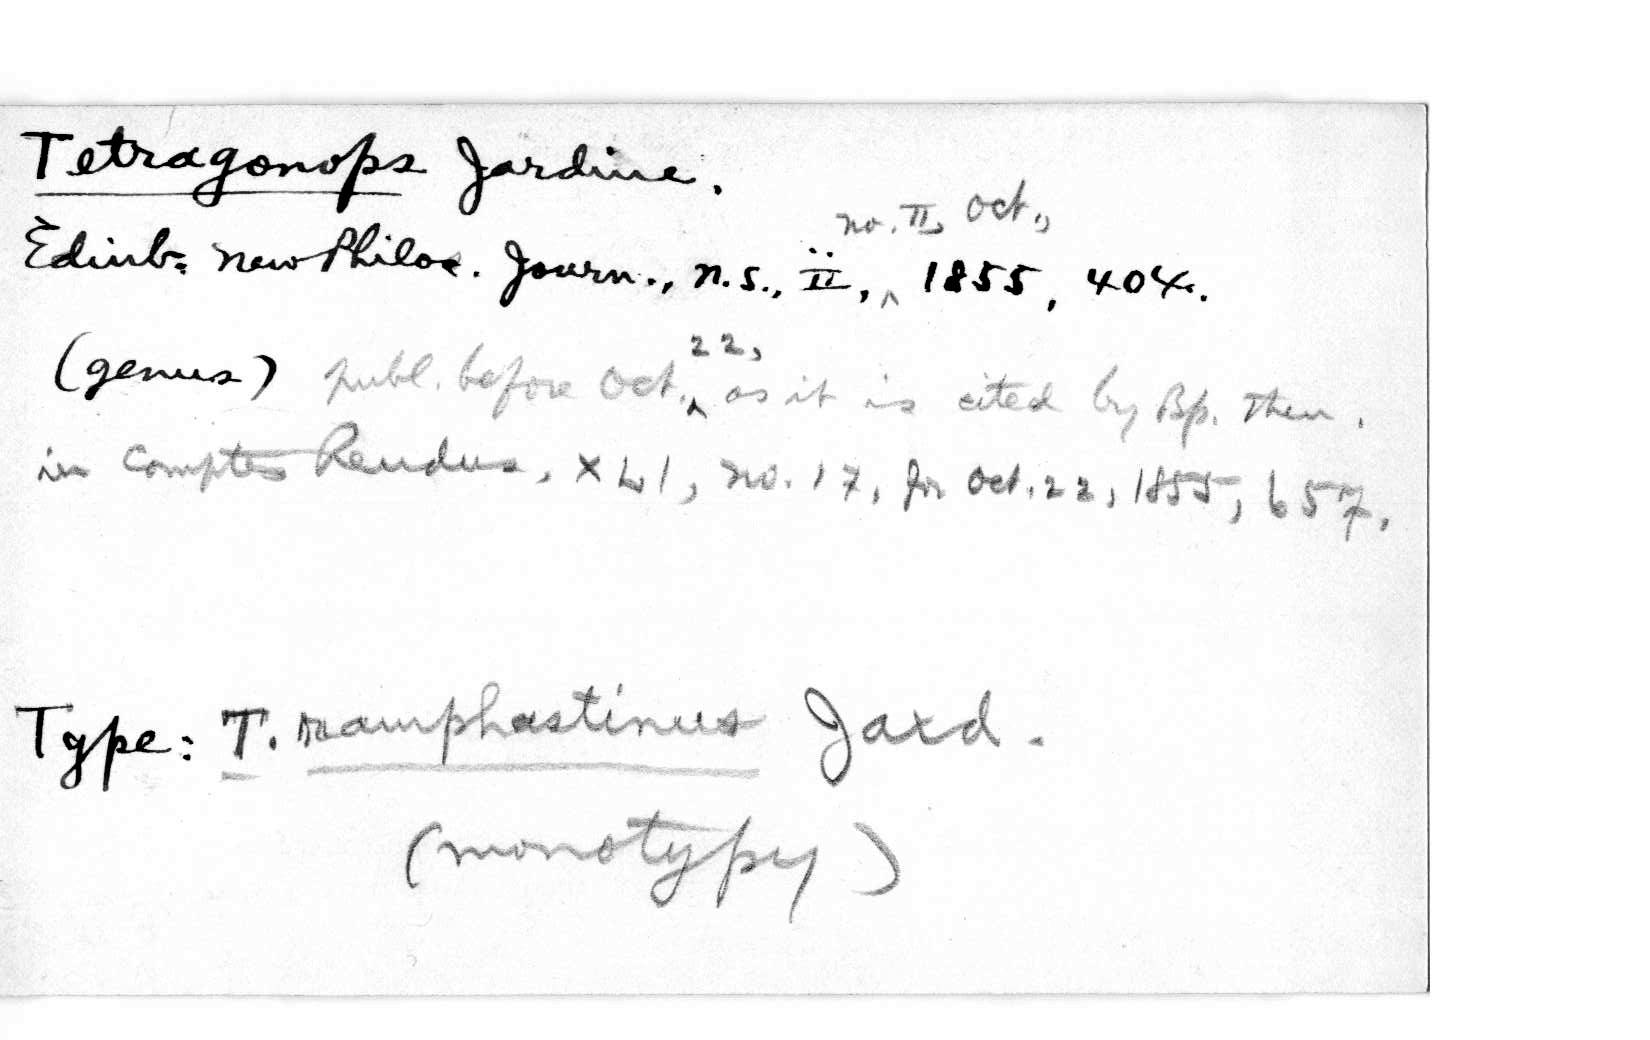 Tetragonops Jardine.
no. II, Oct.,
Edinb. New Philos. Journ., n.s., ii, ^ 1855, 404.
22,
(genus) publ. before Oct. ^ as it is cited by Bp. then.
in Comptes Rendus, XLI, no. 17, for Oct. 22, 1855, 657.
Type: T. ramphastinus Jard.
(monotypy)